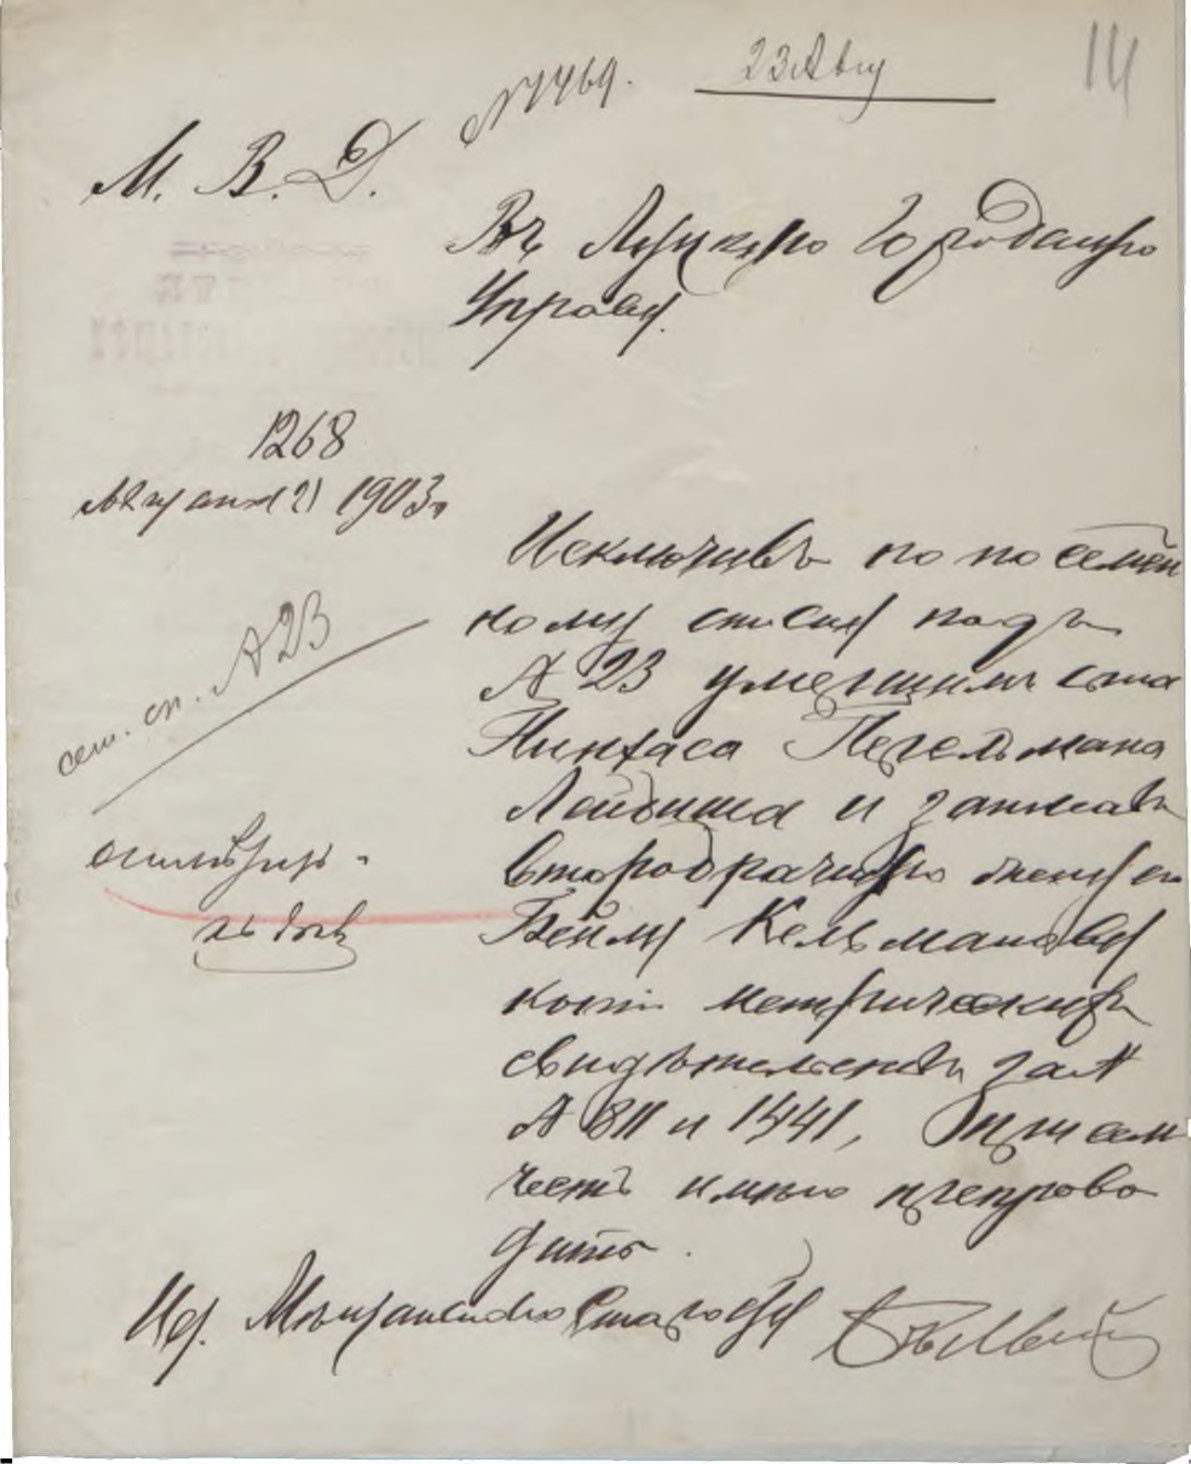 № 1469. 23 Авг
14
М. В. Д.
Въ Луцкую Городскую
Управу.
1268
Августа 21 1903 г.
Исключивъ по посемей
ному списку подъ
№ 23 умершимъ сына
Пинхаса Перельмана
Лейбиша и записавъ
второбрачную жену его
Бейлу Кельманову
копіи метрическихъ
свидѣтельствъ за №
№ 811 и 1441, При семъ
честь имѣю препрово
дить.
сем. сп. № 23
Мѣщанскій Староста